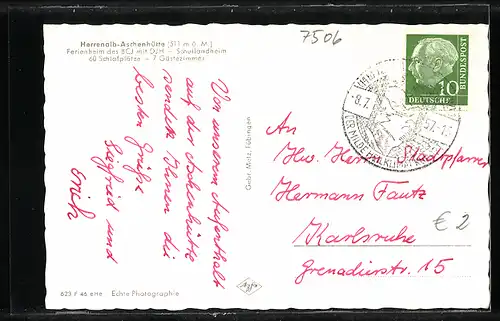 7506
Herrenalb-Aschenhütte (511 m ü. M.)
Ferienheim des BCJ mit DJH - Schullandheim
60 Schlafplätze - 7 Gästezimmer
Von unserem Aufenthalt
auf der Aschenhütte
sendet Ihnen die
besten Grüße
Siegfried und
Erich
Gebr. Metz, Tübingen
-8.7.
57.-15
10
DEUTSCHE
BUNDESPOST
An
Herrn Stadtpfarrer
Hermann Fautz
Karlsruhe
Grenadierstr. 15
€ 2
623 F 46 ene Echte Photographie
Agfa